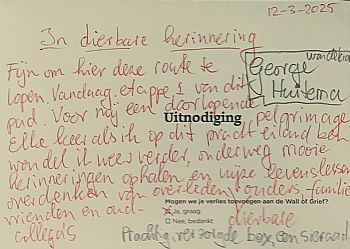 12-3-2025
In dierbare herinnering
Fijn om hier deze route te
lopen. Vandaag etappe 1 van dit
pad. Voor mij een doorlopende
Uitnodiging pelgrimage
Elke keer als ik op dit prachteiland ben
wandel ik weer verder, onderweg mooie
herinneringen ophalen en wijze levenslessen
overdenken van overleden ouders, familie
vrienden en oud-
collega's
wandelaar
George
Huitema
Mogen we je verlies toevoegen aan de Wall of Grief?
Ja, graag
Nee, bedankt
dierbare
Prachtig verzorgde box, een sieraad